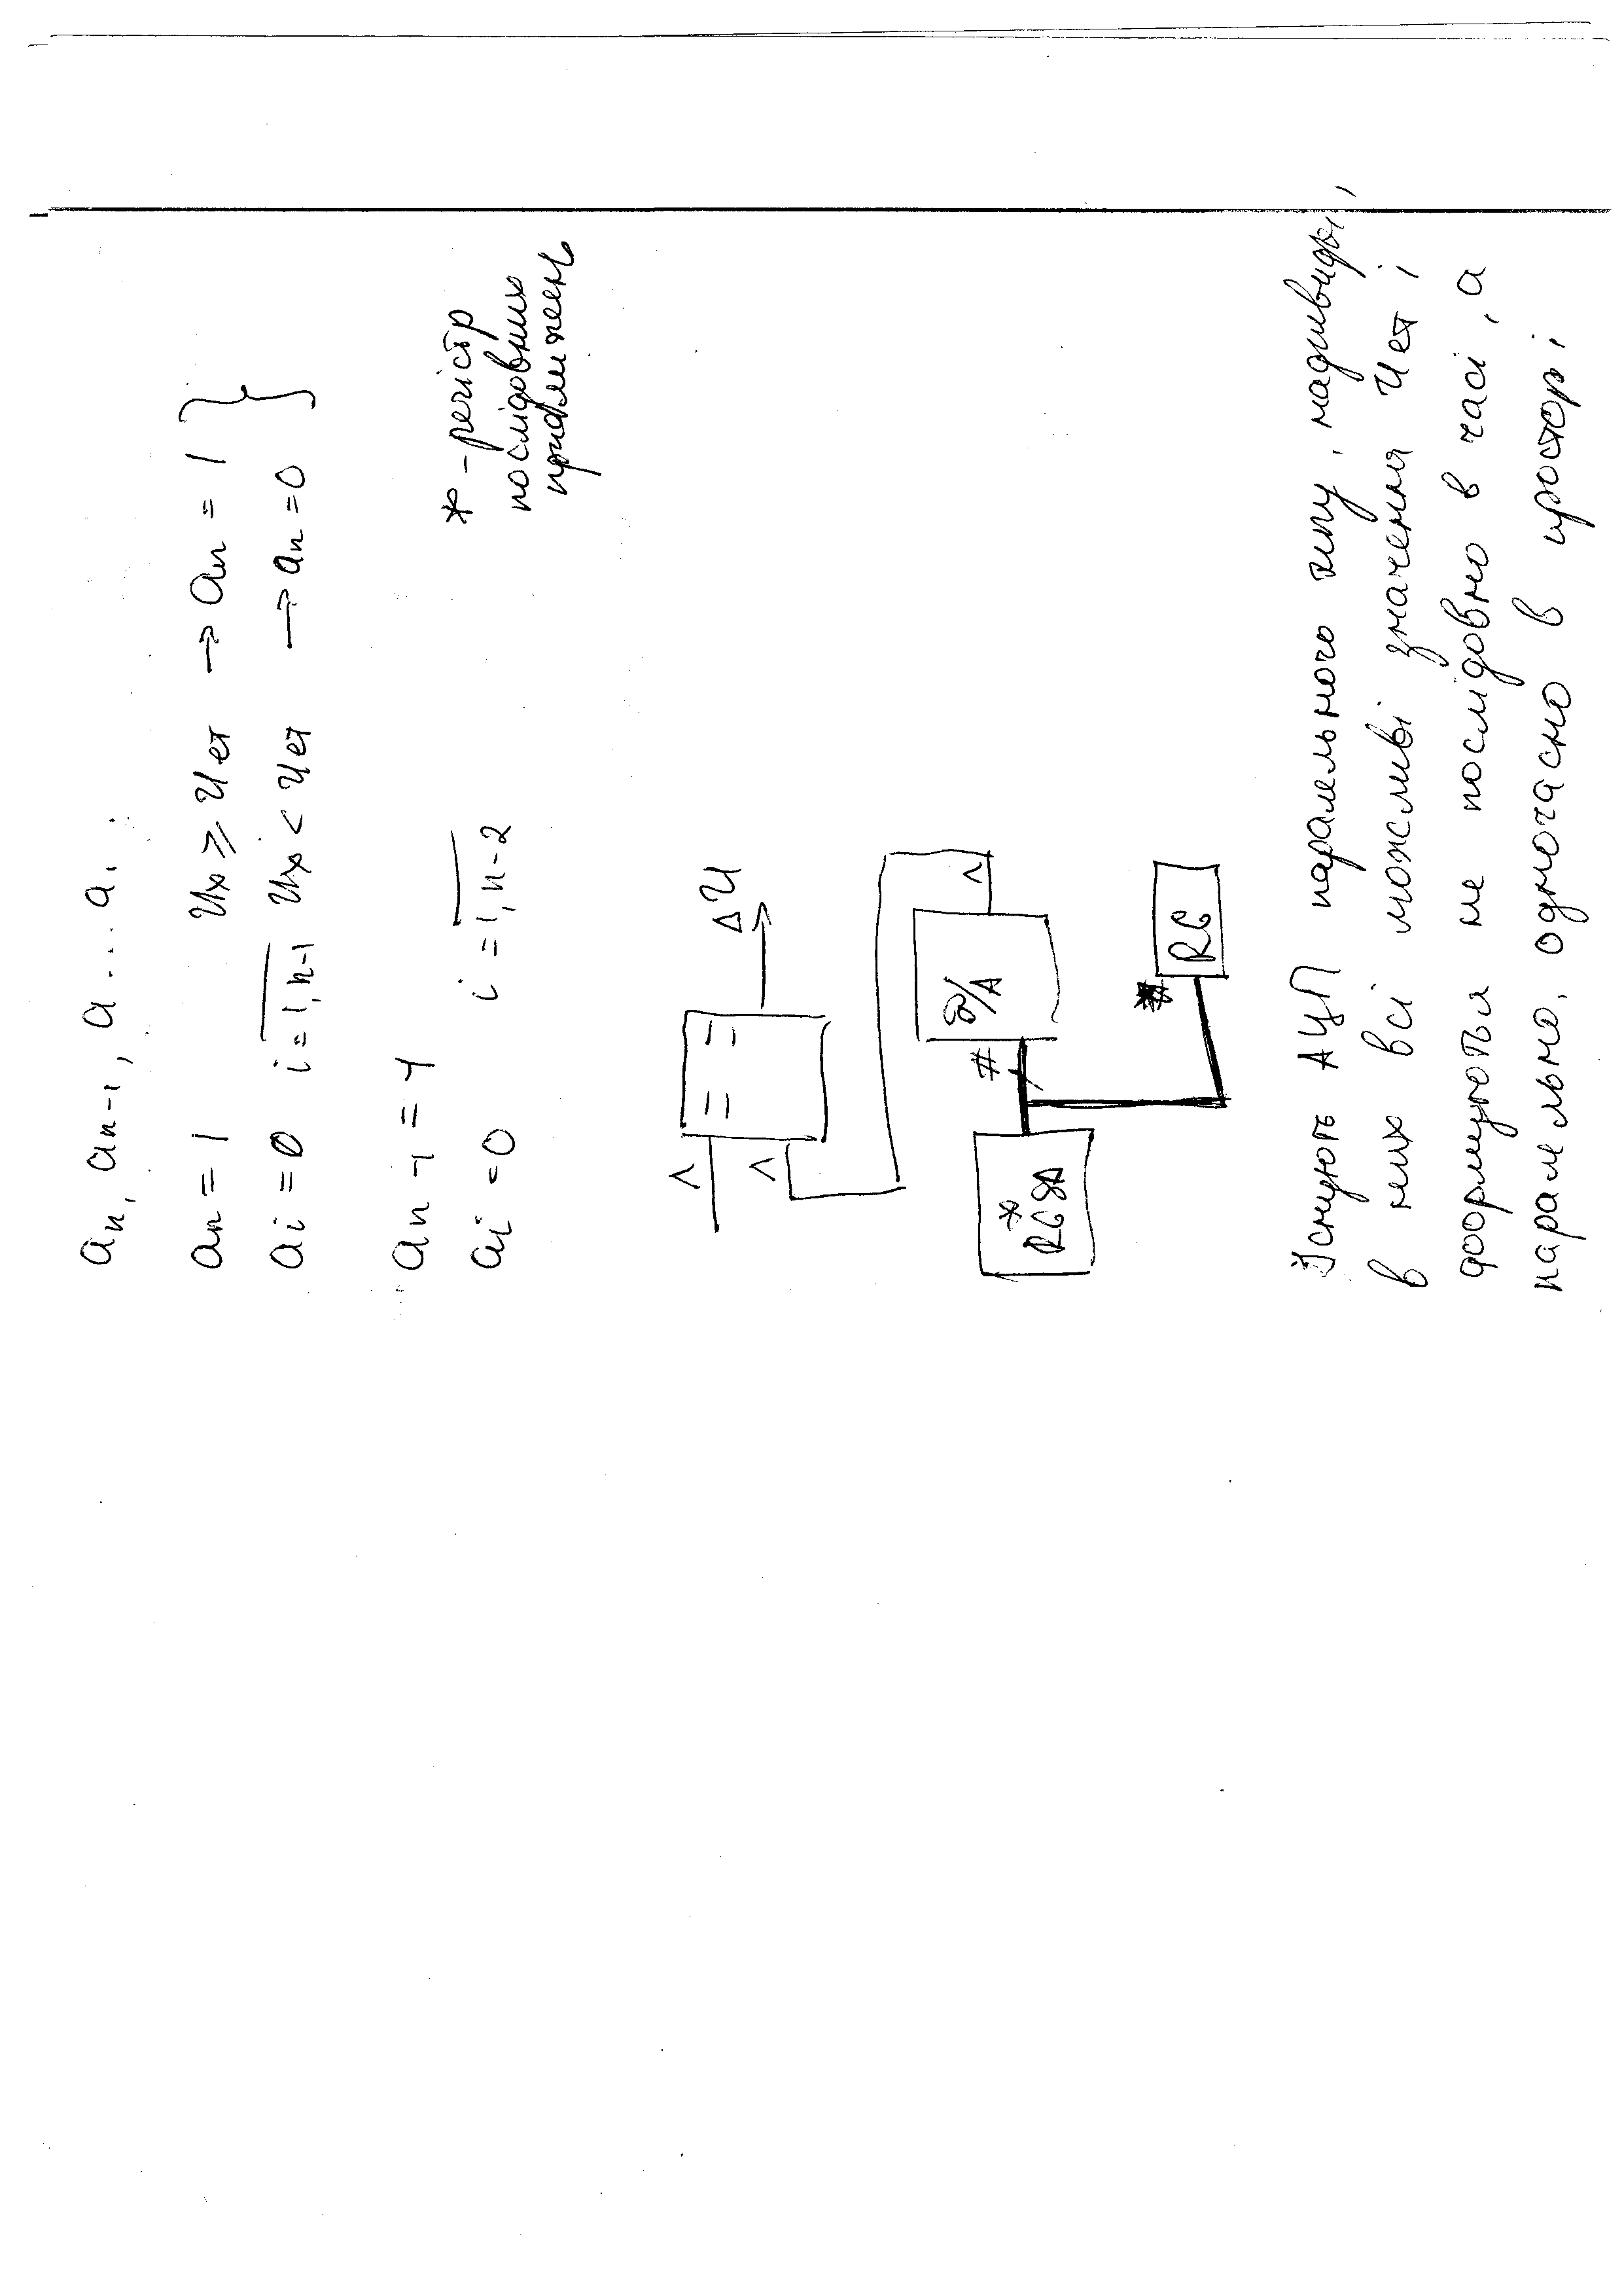 an, an-1, a .... a1.
an = 1    Ux ≥ Uет → an = 1 }
ai = 0  i = 1, n-1  Ux < Uет → an = 0
an-1 = 1
ai = 0    i = 1, n-2
* - регістр
послідовних
приближень
= =
ΔU
#
D/A
*
RGSA
#
RG
Існують АЦП паралельного типу, надшвидкі,
в них всі можливі значення Uет і
формуються не послідовно в часі, а
паралельно, одночасно в просторі